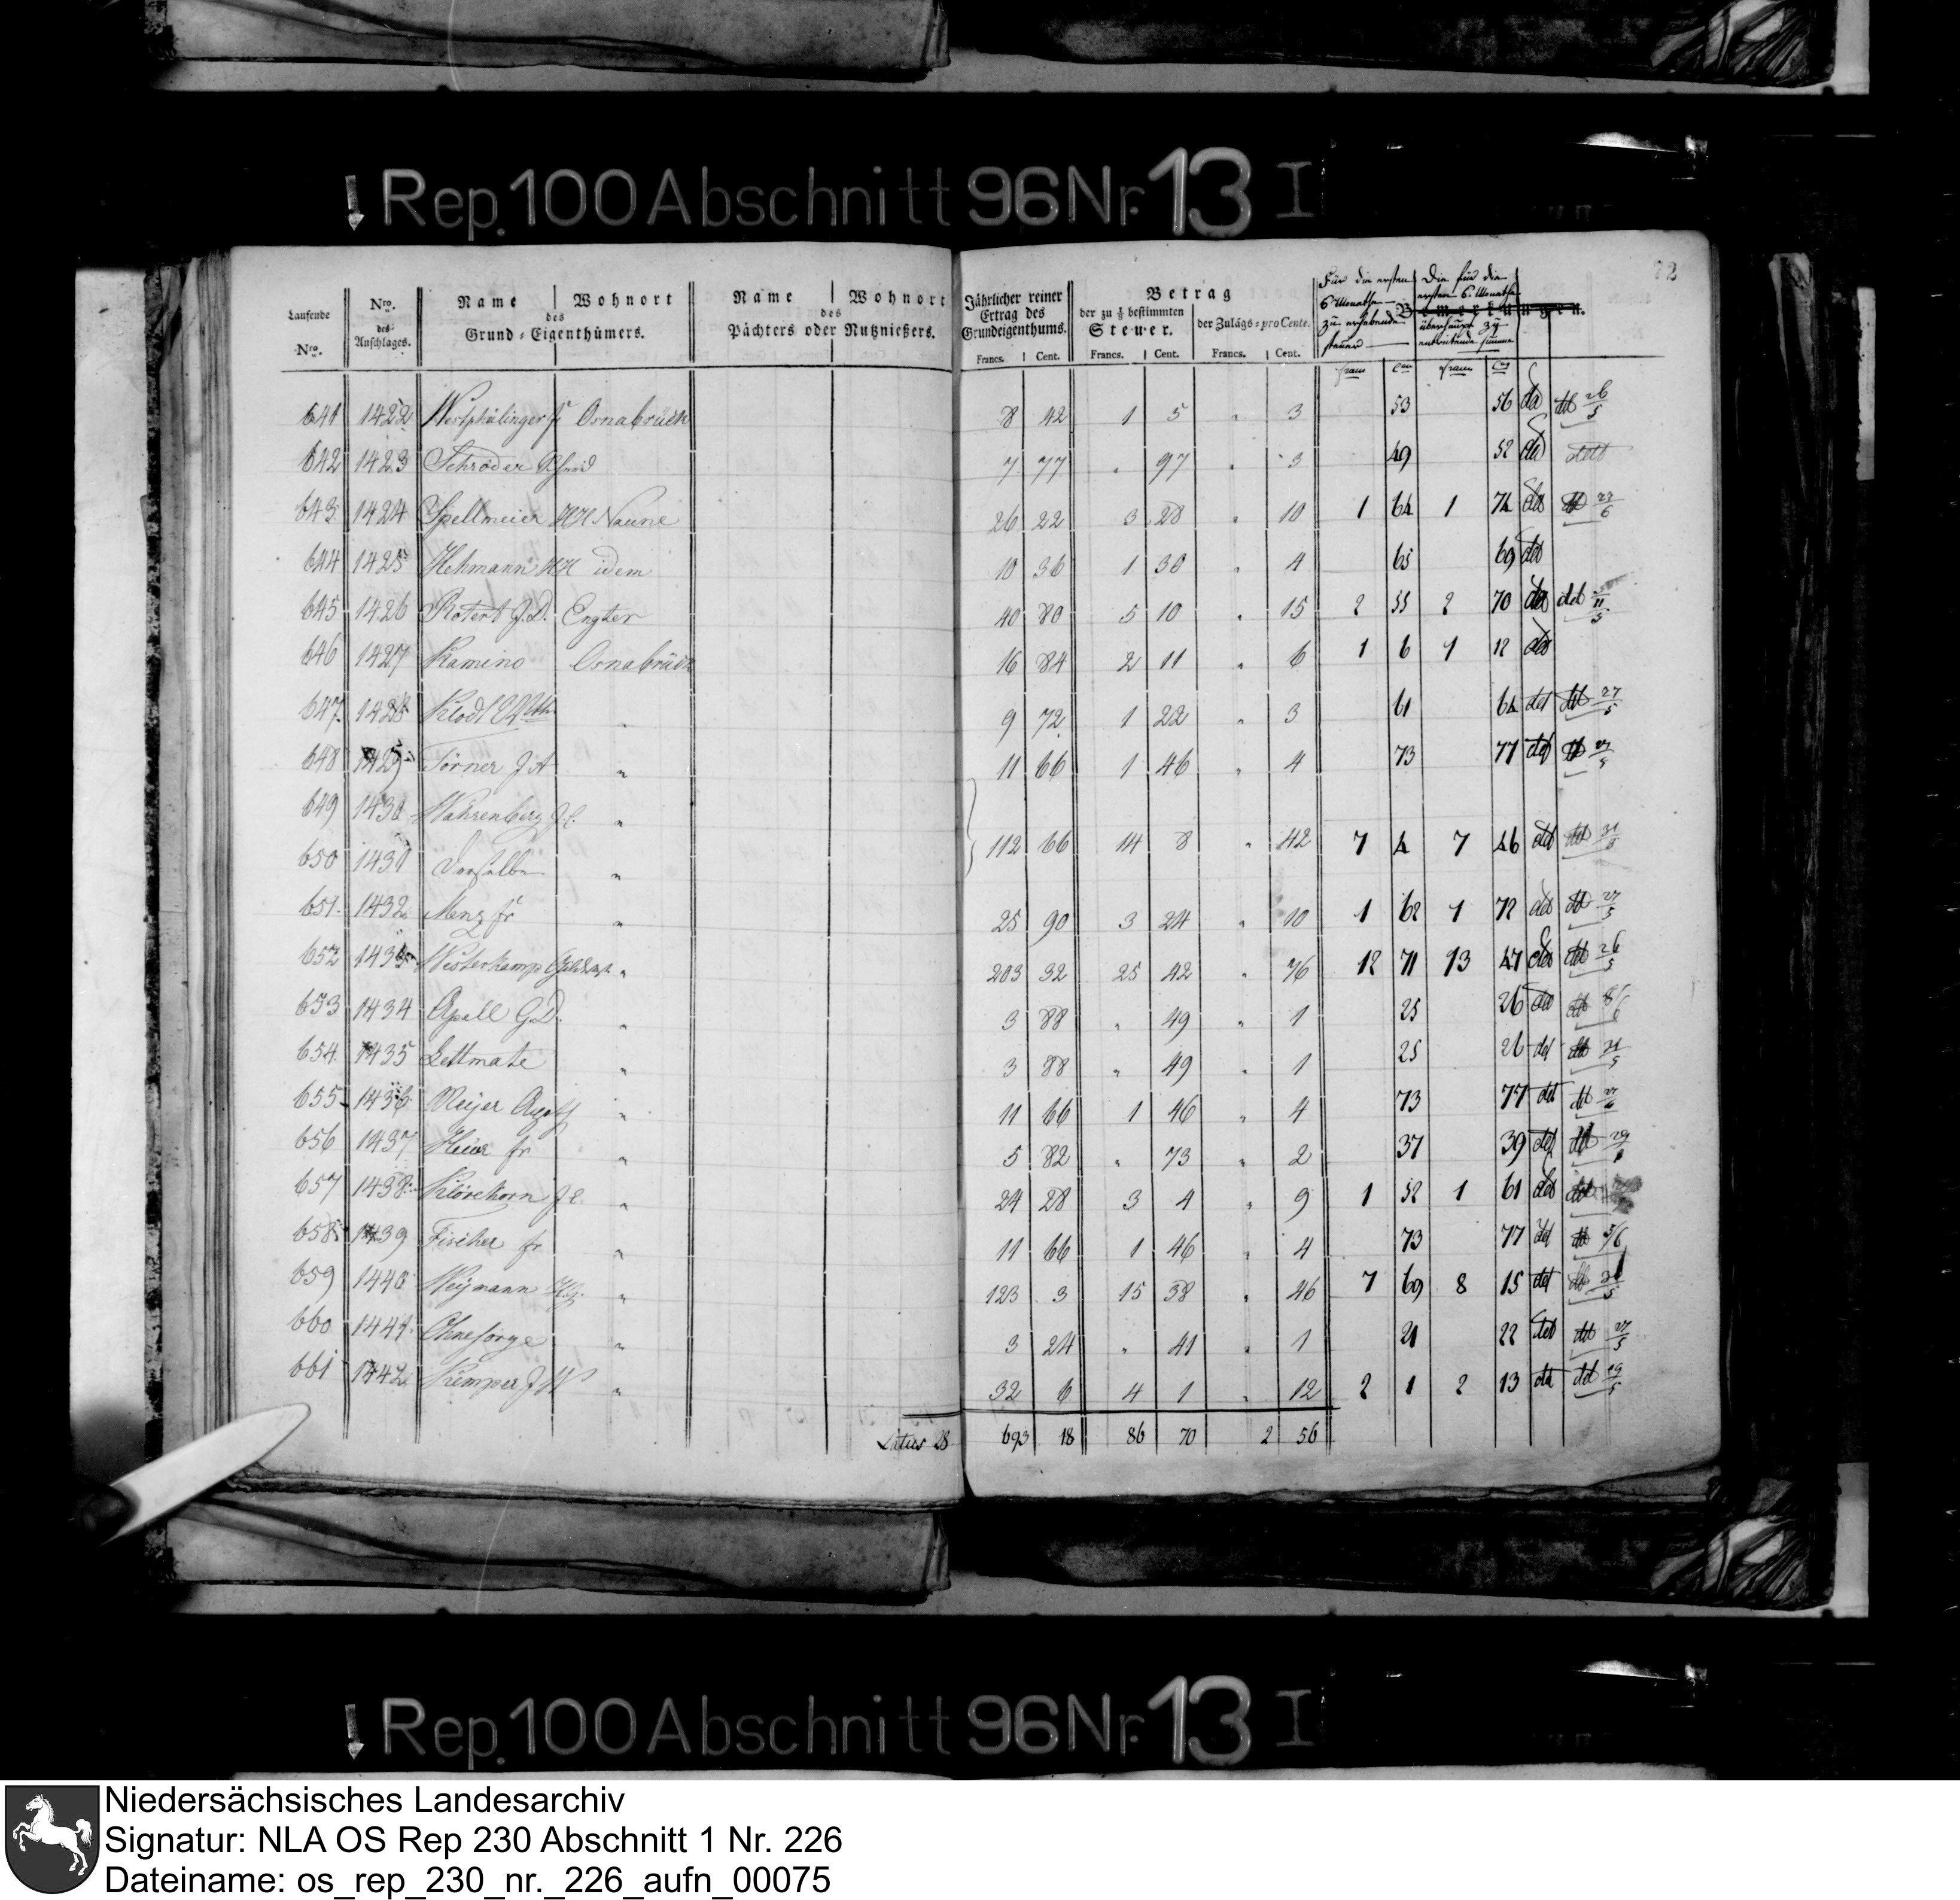 Rep. 100 Abschnitt 96 Nr. 13 I
72
Laufende Nro. | Nro. des Anschlages. | Name | Wohnort des Grund-Eigenthümers. | Name | Wohnort des Pächters oder Nutznießers. | Jährlicher reiner Ertrag des Grundeigenthums. | Betrag der zu 1/8 bestimmten Steuer. | der Zulags-pro Cente. | Für die ersten 6 Monathe zu erhebende Steuer | Die für die ersten 6. Monathe überhaupt zu entrichtende Summe | Bemerkungen.
Francs. | Cent. | Francs. | Cent. | Francs. | Cent.
641 1422 Westphälinger fr Osnabrück 8 42 1 5 " 3 53 56 dd dd 26/5
642 1423 Schröder 7 77 " 97 " 3 49 52 dd dedt
643 1424 Spellmeier HH Naune 26 22 3 28 " 10 1 64 1 74 dd dd 23/6
644 1425 Hehmann HH idem 10 36 1 30 " 4 65 69 dd
645 1426 Rotert J.D. Engter 40 80 5 10 " 15 2 55 2 70 dd dd 11/5
646 1427 Kamino Osnabrück 16 84 2 11 " 6 1 6 1 12 dd
647 1428 Klodt " 9 72 1 22 " 3 61 64 dd dd 27/5
648 1429 Törner J A " 11 66 1 46 " 4 73 77 dd dd
649 1430 Wahrenberg J.C. "
650 1431 Derselbe " 112 66 14 8 " 42 7 4 7 46 dd dd 31/5
651 1432 Menz fr " 25 90 3 24 " 10 1 62 1 72 dd dd 27/5
652 1433 Westerkamp " 203 32 25 42 " 76 12 71 13 47 dd dd 26/5
653 1434 Apell G.D. " 3 88 " 49 " 1 25 26 dd dd 8/6
654 1435 Lettmate " 3 88 " 49 " 1 25 26 dd dd 31/5
655 1436 Meijer " 11 66 1 46 " 4 73 77 dd dd
656 1437 fr " 5 82 " 73 " 2 37 39 dd dd
657 1438 Klörekorn J.C. " 24 28 3 4 " 9 1 52 1 61 dd dd
658 1439 Fischer fr " 11 66 1 46 " 4 73 77 dd dd 5/6
659 1440 Meijmann " 123 3 15 38 " 46 7 69 8 15 dd dd
660 1441 Ohnesorge " 3 24 " 41 " 1 21 22 dd dd 27/5
661 1442 Kemper J W " 32 6 4 1 " 12 2 1 2 13 dd dd 19/5
Latus 28 693 18 86 70 2 56
Rep. 100 Abschnitt 96 Nr. 13 I
Niedersächsisches Landesarchiv
Signatur: NLA OS Rep 230 Abschnitt 1 Nr. 226
Dateiname: os_rep_230_nr._226_aufn_00075